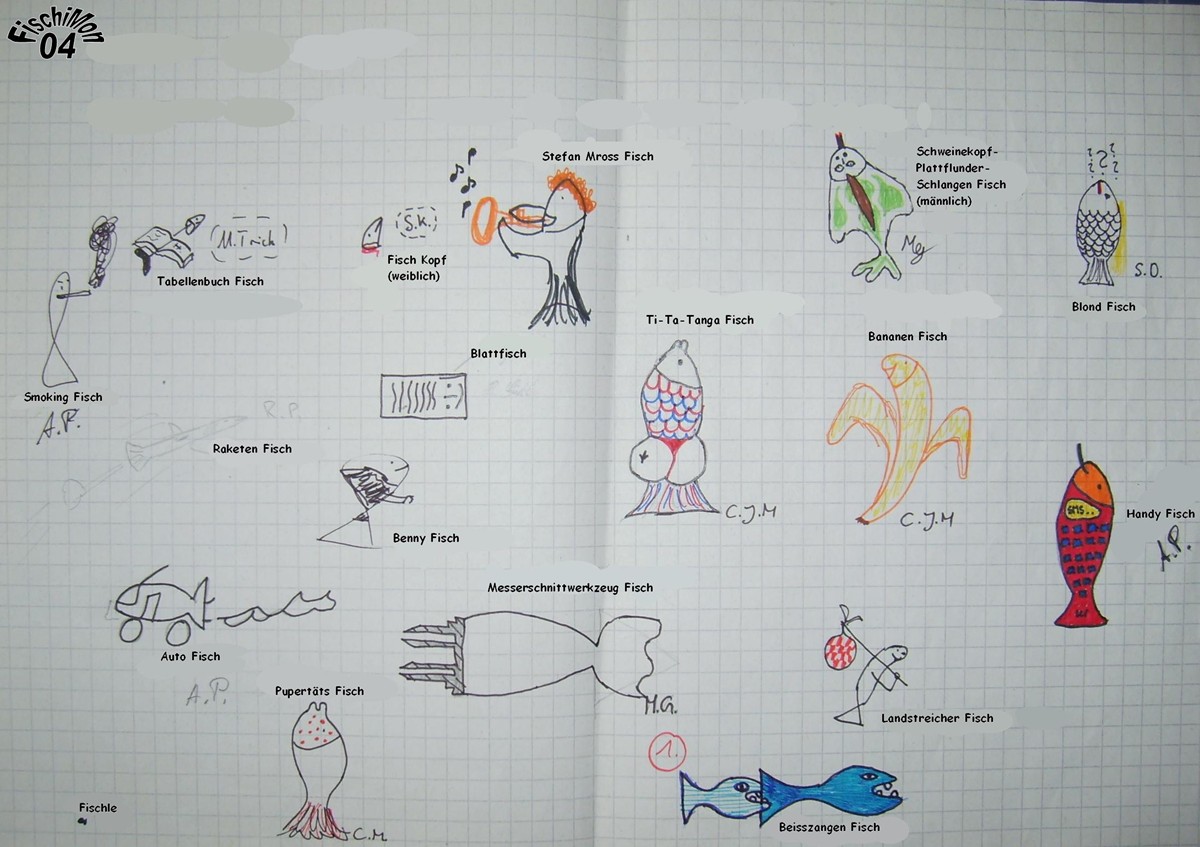 FischiMon
04
Stefan Mross Fisch
Schweinekopf-
Plattflunder-
Schlangen Fisch
(männlich)
S.K.
Fisch Kopf
(weiblich)
Tabellenbuch Fisch
S.O.
Blond Fisch
Ti-Ta-Tanga Fisch
Bananen Fisch
Blattfisch
Smoking Fisch
A.P.
R.P.
Raketen Fisch
C.J.M
C.J.M
SMS..
Handy Fisch
A.P.
Benny Fisch
Messerschnittwerkzeug Fisch
Auto Fisch
A.P.
Pupertäts Fisch
M.G.
Landstreicher Fisch
1.
Fischle
C.M.
Beisszangen Fisch